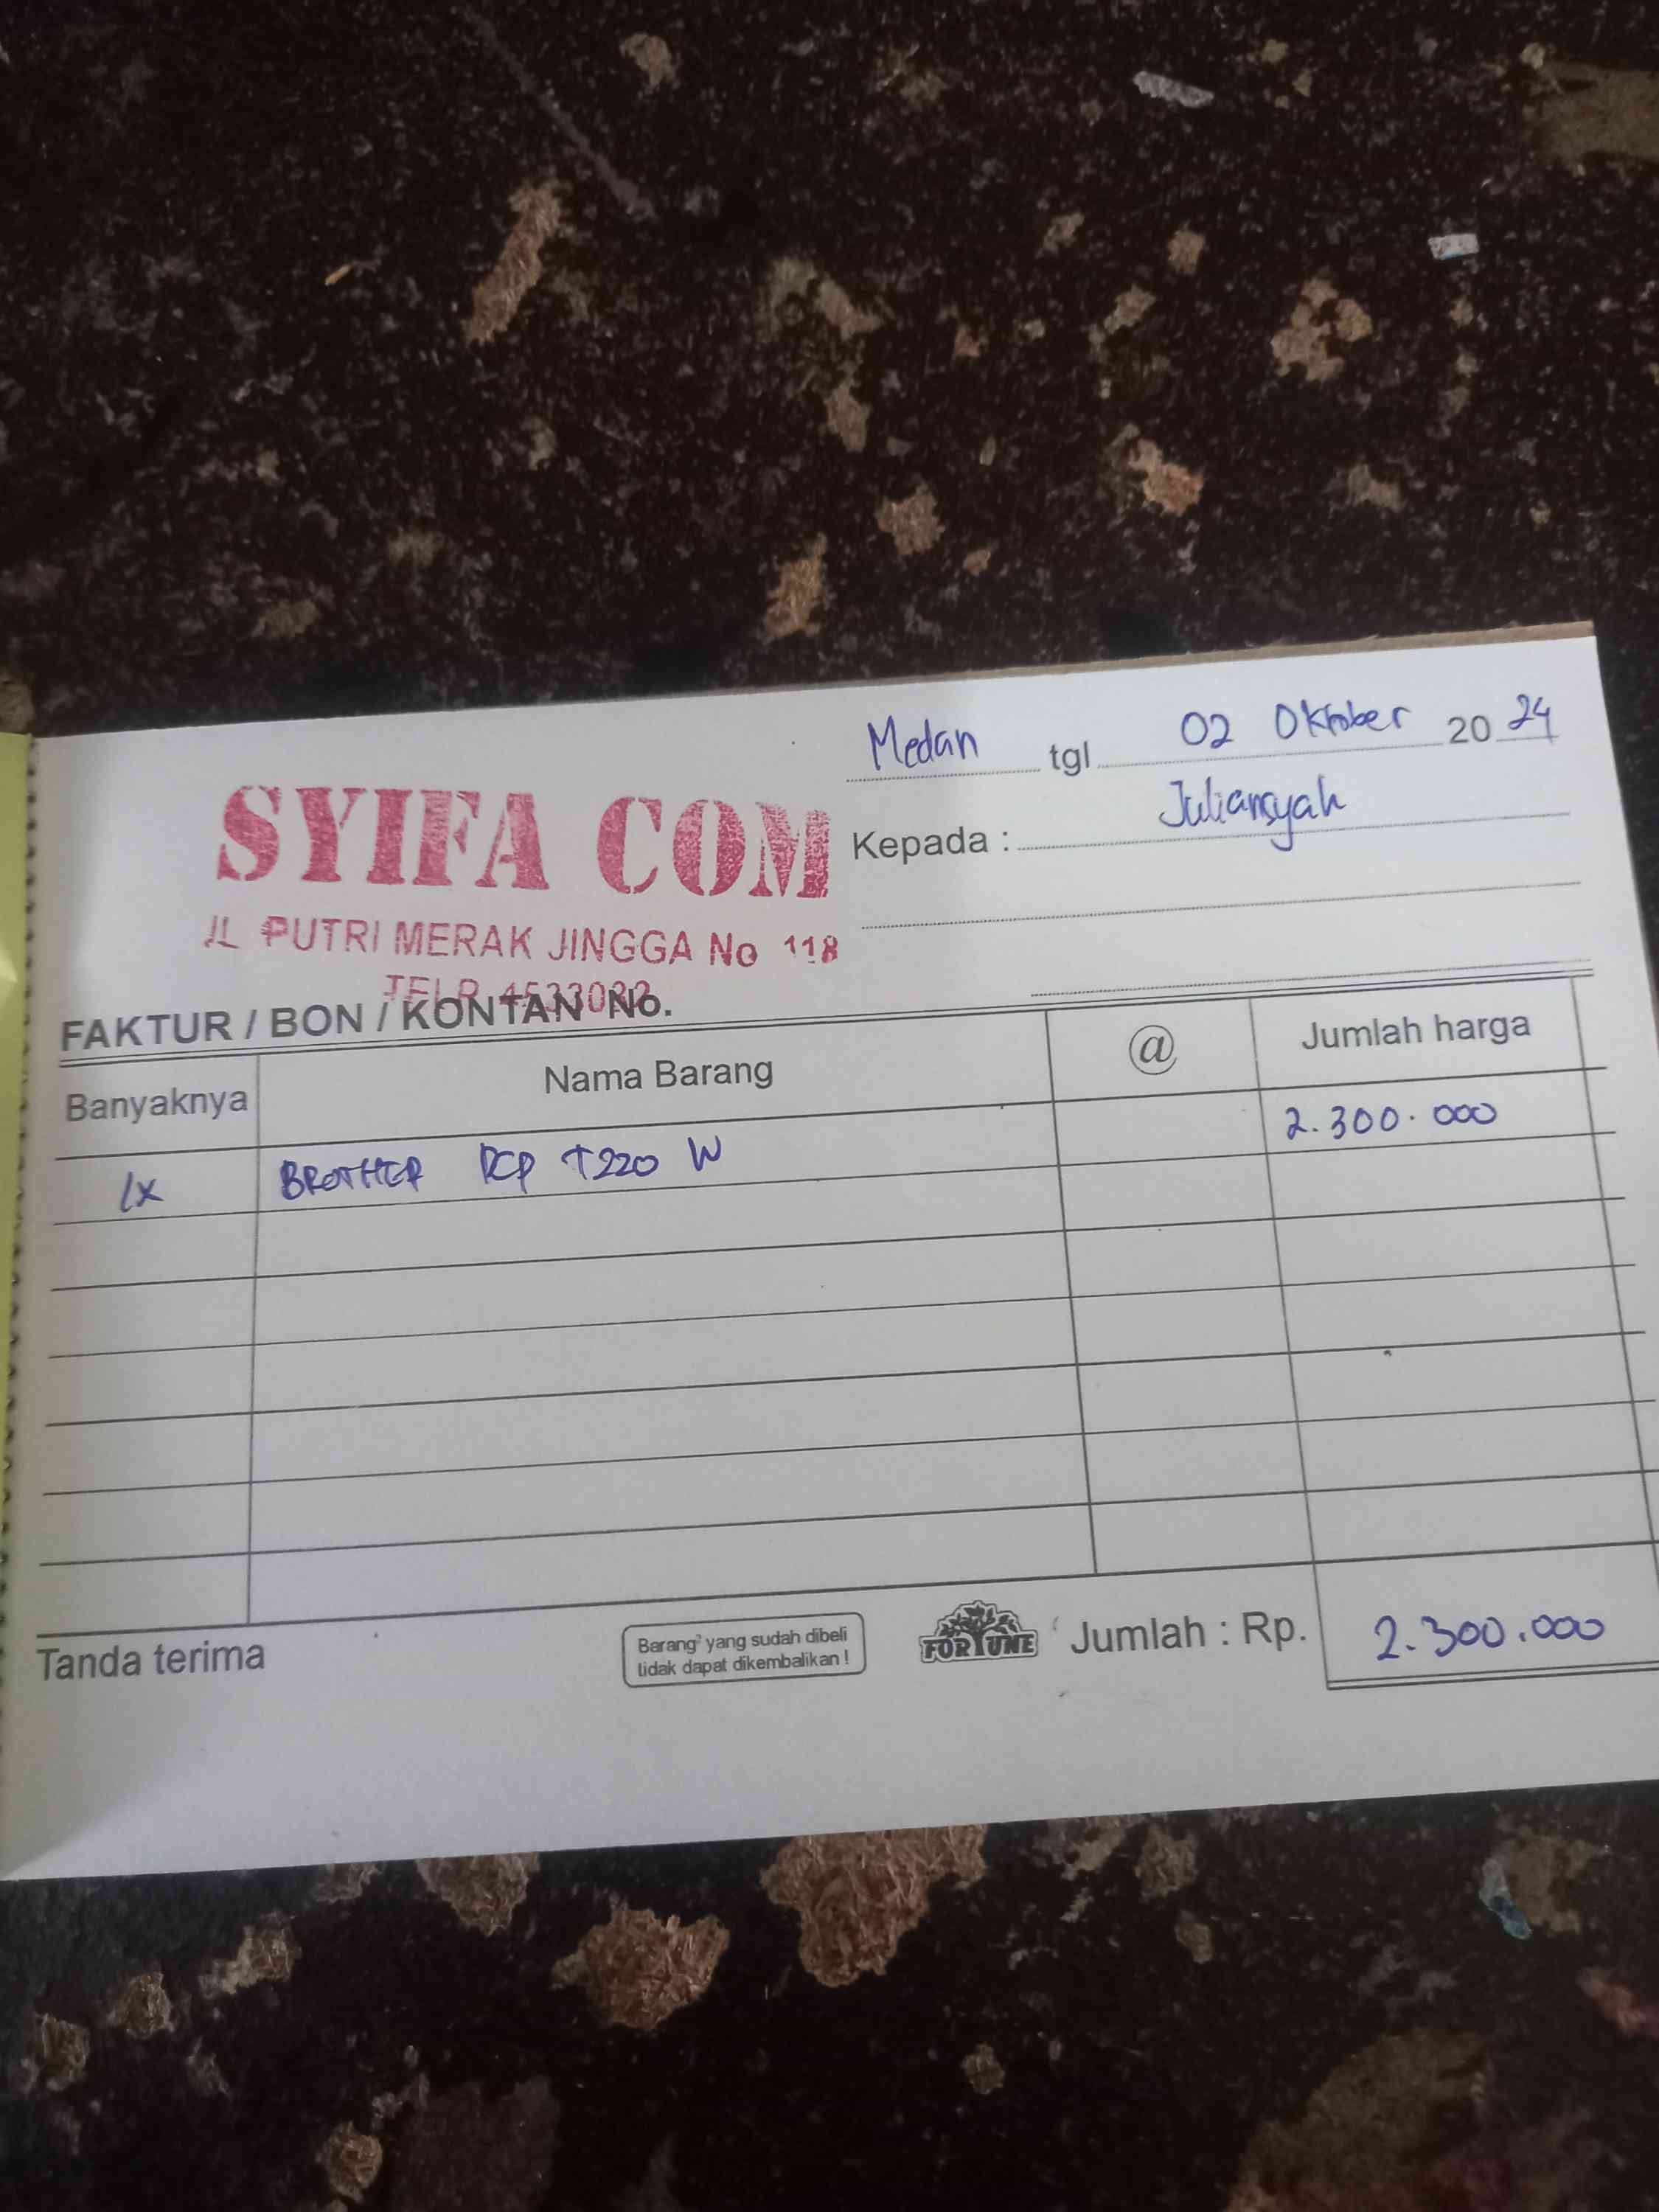 Medan tgl 02 Oktober 2024
SYIFA COM
Kepada : Juliansyah
JL PUTRI MERAK JINGGA No 118
TELP.
FAKTUR / BON / KONTAN No.
Banyaknya Nama Barang @ Jumlah harga
1x BROTHER DCP T220 W 2.300.000
Tanda terima
Barang² yang sudah dibeli
tidak dapat dikembalikan !
FORTUNE
Jumlah : Rp. 2.300.000